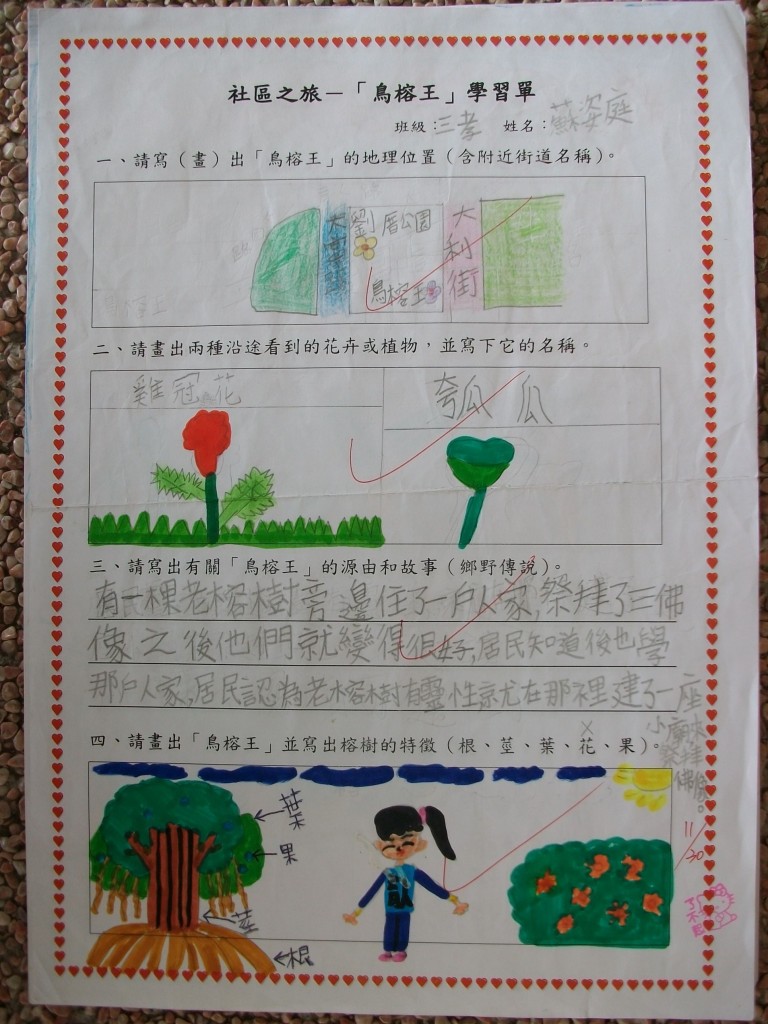 社區之旅－「鳥榕王」學習單
班級：三孝 姓名：蘇姿庭
一、請寫（畫）出「鳥榕王」的地理位置（含附近街道名稱）。
劉厝公園
大利街
鳥榕王
二、請畫出兩種沿途看到的花卉或植物，並寫下它的名稱。
雞冠花
瓠瓜
三、請寫出有關「鳥榕王」的源由和故事（鄉野傳說）。
有一棵老榕樹旁邊住了一戶人家，祭拜了三佛
像之後他們就變得很好，居民知道後也學
那戶人家，居民認為老榕樹有靈性就在那裡建了一座
小廟來
祭拜
佛像。
四、請畫出「鳥榕王」並寫出榕樹的特徵（根、莖、葉、花、果）。
×
葉
果
莖
根
11/30
了不起